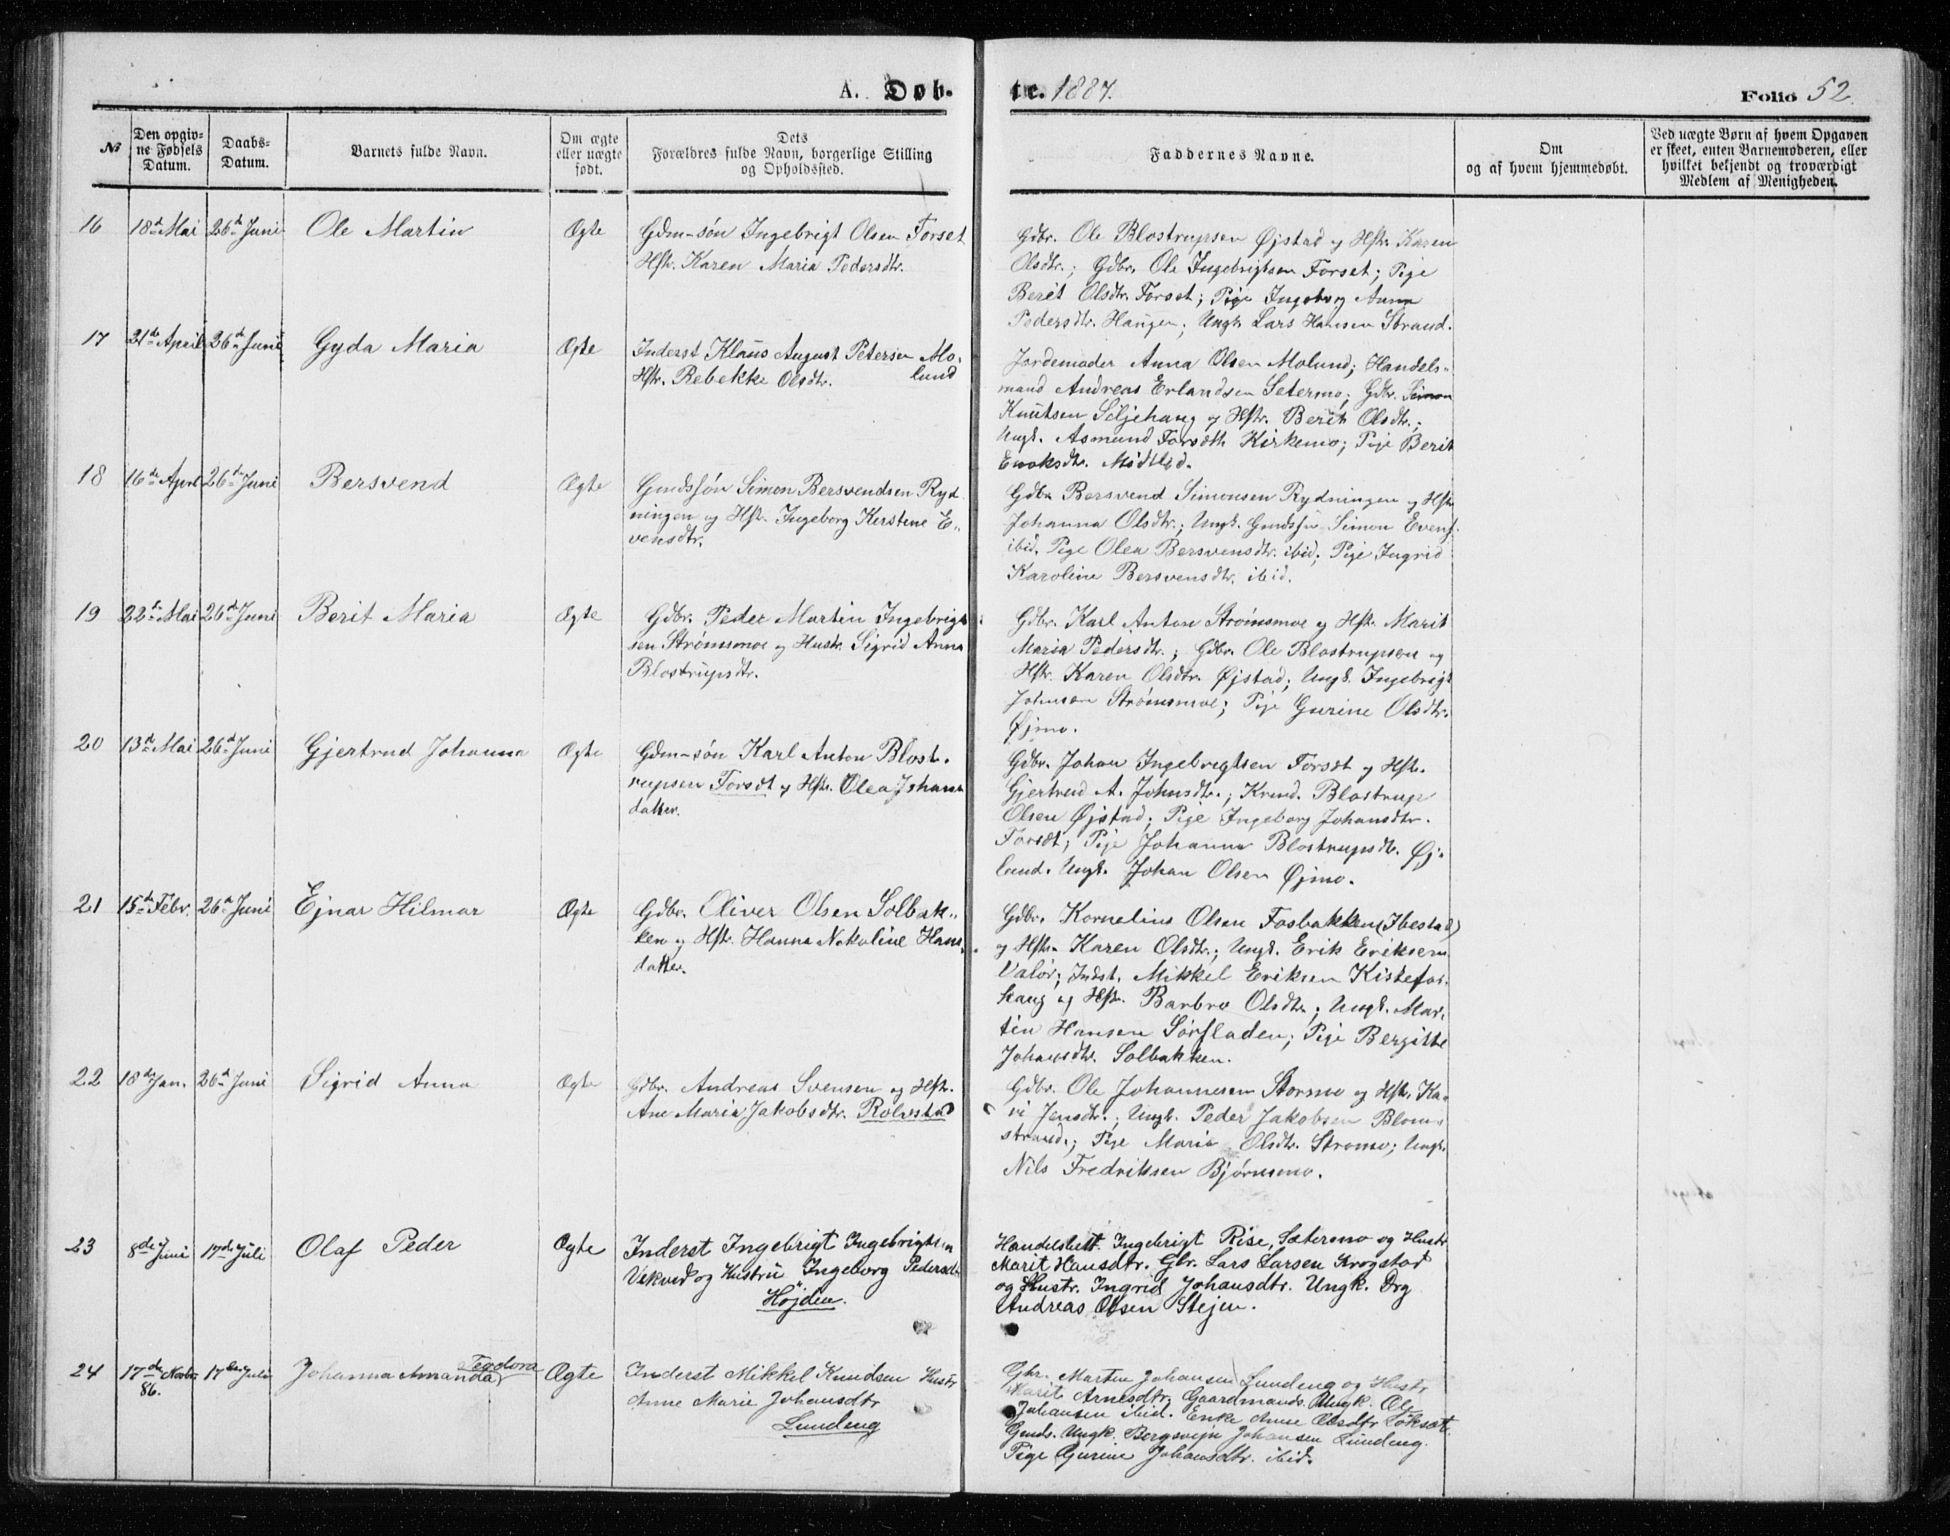 A. Døb-
te. 1887.
Folio 52.
No
Den opgiv-
ne Fødsels
Datum.
Daabs-
Datum.
Barnets fulde Navn.
Om ægte
eller uægte
født.
Dets
Forældres fulde Navn, borgerlige Stilling
og Opholdssted.
Faddernes Navne.
Om
og af hvem hjemmedøbt.
Ved uægte Børn af hvem Opgaven
er skeet, enten Barnemoderen, eller
hvilket bekjendt og troværdigt
Medlem af Menigheden.
16 18de Mai 26de Juni Ole Martin Ægte
Gdm-søn Ingebrigt Olsen Forset
Hstr. Karen Maria Pedersdtr.
Gdbr. Ole Blostrupsen Øjstad og Hstr. Karen
Olsdtr.; Gdbr. Ole Ingebrigtsen Forset; Pige
Berit Olsdtr. Forset; Pige Ingeborg Anna
Pedersdtr. Haugen; Ungk. Lars Hansen Strand.
17 21de April 26de Juni Gyda Maria Ægte
Inderst Klaus August Petersen Mo-
lund
Hstr. Rebekke Olsdtr.
Jordemoder Anna Olsen Molund; Handels-
mand Andreas Erlandsen Setermo; Gdbr. Simon
Knutsen Seljehaug og Hstr. Berit Olsdtr.;
Ungk. Asmund Forsdth Kirkemo; Pige Berit
Enoksdtr. Mødtlid.
18 16de April 26de Juni Bersvend Ægte
Gmdssøn Simon Bersvendsen Ryd
ningen og Hstr. Ingeborg Kerstine E-
vensdtr.
Gdbr. Bersvend Simonsen Rydningen og Hstr.
Johanna Olsdtr.; Ungk. Gmdssøn Simon Evens.
ibid. Pige Olea Bersvensdtr. ibid; Pige Ingrid
Karoline Bersvensdtr. ibid.
19 22de Mai 26de Juni Berit Maria Ægte
Gdbr. Peder Martin Ingebrigt
sen Strømsmoe og Hustr. Sigrid Anna
Blostrupsdtr.
Gdbr. Karl Anton Strømsmoe og Hstr. Marit
Maria Pedersdtr.; Gdbr. Ole Blostrupsen og
Hstr. Karen Olsdtr. Øjstad; Ungk. Ingebrigt
Johnsen Strømsmoe; Pige Gurine Olsdtr.
Øjmo.
20 13de Mai 26de Juni Gjertrud Johanna Ægte
Gdm-søn Karl Anton Blost-
rupsen Forsdt og Hstr. Olea Johans
datter.
Gdbr. Johan Ingebrigtsen Forsdt og Hstr.
Gjertrud A. Johnsdtr.; Krmd. Blostrup
Olsen Øjstad; Pige Ingeborg Johansdtr.
Forsdt; Pige Johanna Blostrupsdtr. Øj-
lund. Ungk. Johan Olsen Øjmo.
21 15de Febr. 26de Juni Ejnar Hilmar Ægte
Gdbr. Oliver Olsen Solbak-
ken og Hstr. Hanna Nekoline Hans-
datter.
Gdbr. Kornelius Olsen Fosbakken (Ibestad)
og Hstr. Karen Olsdtr.; Ungk. Erik Eriksen
Valør; Indst. Mikkel Eriksen Kistefos-
haug og Hstr. Barbro Olsdtr.; Ungk. Mar-
tin Hansen Sørfladen; Pige Bergitte
Johansdtr. Solbakken.
22 18de Jan. 26de Juni Sigrid Anna Ægte
Gdbr. Andreas Svensen og Hstr.
Ane Maria Jakobsdtr. Rolvstad
Gdbr. Ole Johannesen Stormo og Hstr. Ka-
ri Jensdtr.; Ungk. Peder Jakobsen Blom-
strand.; Pige Maria Olsdtr. Stromo; Ungk.
Nils Fredriksen Bjørnsmo.
23 8de Juni 17de Juli Olaf Peder Ægte
Inderst Ingebrigt Ingebrigtsen
Vekved og Hustru Ingeborg Pedersdtr
Højden.
Handelsbett. Ingebrigt Rise, Sætermo og Hustr
Marit Hansdtr. Gbr. Lars Larsen Krogstad
og Hustr. Ingrid Johansdtr. Ungk. Drg
Andreas Olsen Stejen.
24 17de Novbr 86. 17de Juli Johanna Amanda Teodora Ægte
Inderst Mikkel Knudsen Hustr
Anne Marie Johansdtr
Lundeng
Gbr. Morten Johansen Lundeng og Hustr
Marit Arnesdtr, Gaardmands. Ungk. Ole
Johansen ibid. Enke Anne Olsdtr Løksæt.
Gmds. Ungk. Bergsvejn Johansen Lundeng.
Pige Gurine Johansdtr. ibid.